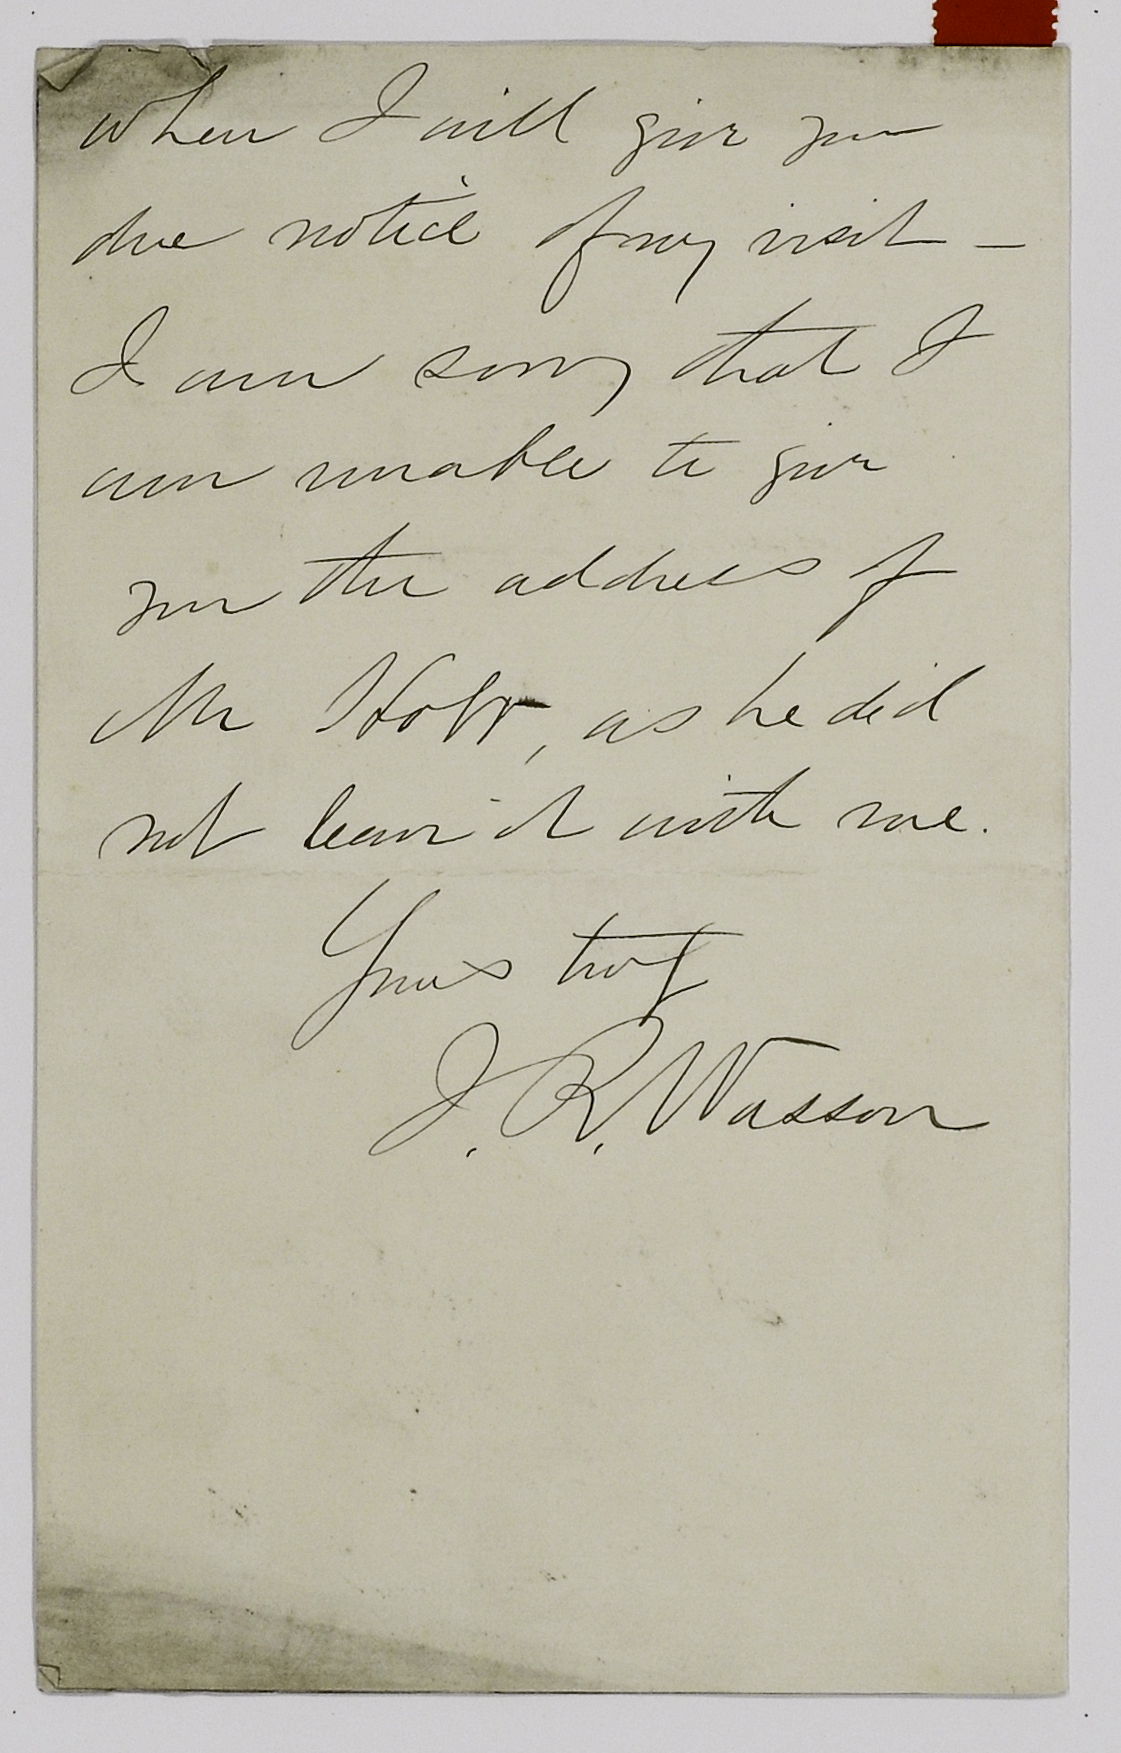 when I will give you
due notice of my visit –
I am sorry that I
am unable to give
you the address of
Mr , as he did
not leave it with me.
Yours truly
J. R. Wasson